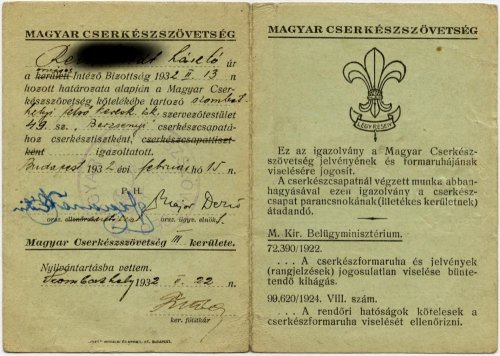 MAGYAR CSERKÉSZSZÖVETSÉG
László úr
a kerületi Intéző Bizottság 1932 II. 13 n
hozott határozata alapján a Magyar Cser-
készszövetség kötelékébe tartozó szombat-
helyi felső keresk. isk. szervezőtestület
49 sz. „Berzsenyi" cserkészcsapatá-
hoz cserkésztisztként, cserkészcsapattiszt-
ként igazoltatott.
Budapest 1932 évi február hó 15 n.
P. H.
Major Dezső
orsz. ellenőrző orsz. ügyv. elnök
Magyar Cserkészszövetség III kerülete.
Nyilvántartásba vettem.
Szombathely 1932 II. 22 n.
ker. főtitkár
MAGYAR CSERKÉSZSZÖVETSÉG
LÉGY RÉSEN
Ez az igazolvány a Magyar Cserkész-
szövetség jelvényének és formaruhájának
viselésére jogosít.
A cserkészcsapatnál végzett munka abban-
hagyásával ezen igazolvány a cserkész-
csapat parancsnokának (illetékes kerületnek)
átadandó.
M. Kir. Belügyminisztérium.
72.390/1922.
. . . A cserkészformaruha és jelvények
(rangjelzések) jogosulatlan viselése bünte-
tendő kihágás.
99.620/1924. VIII. szám.
. . . A rendőri hatóságok kötelesek a
cserkészformaruha viselését ellenőrizni.